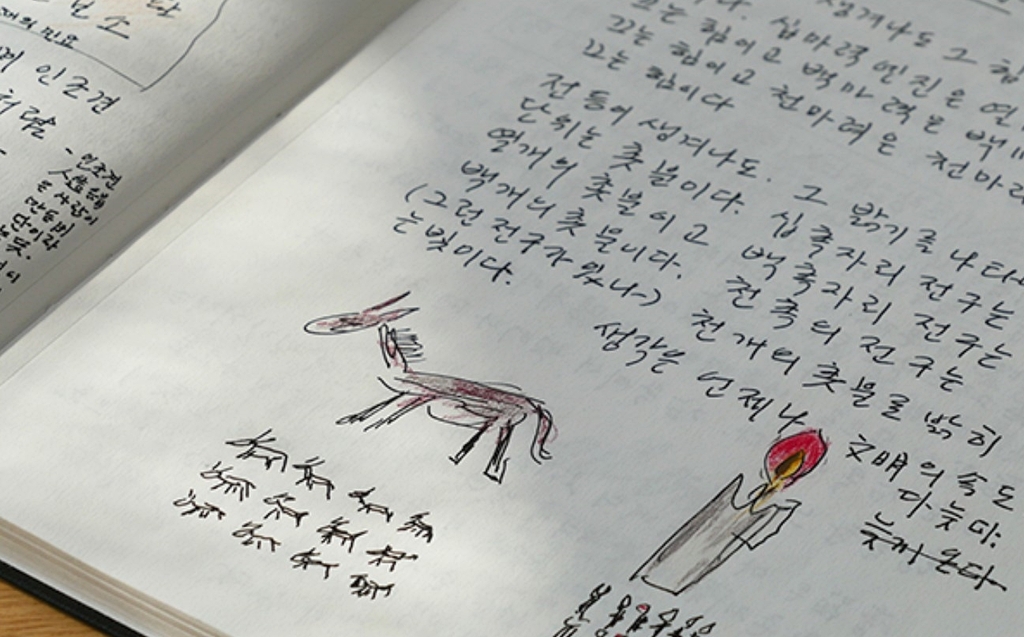 인조견
처럼
- 인조견
人造絹
은 사람이
단이라
생겨나도 그 힘
다. 십마력 엔진은
끄는 힘이고 백마력은 백
끄는 힘이고 천마력은 천마리
끄는 힘이다
전등이 생겨나도. 그 밝기를 나타
단위는 촛불이다. 십촉자리 전구는
열개의 촛불이고 백촉자리 전구는
백개의 촛불이다. 천촉의 전구는
(그런 전구가 있나~) 천개의 촛불로 밝히
는 빛이다.
생각은 언제나 文明의 속도
다 늦
늦게 온다